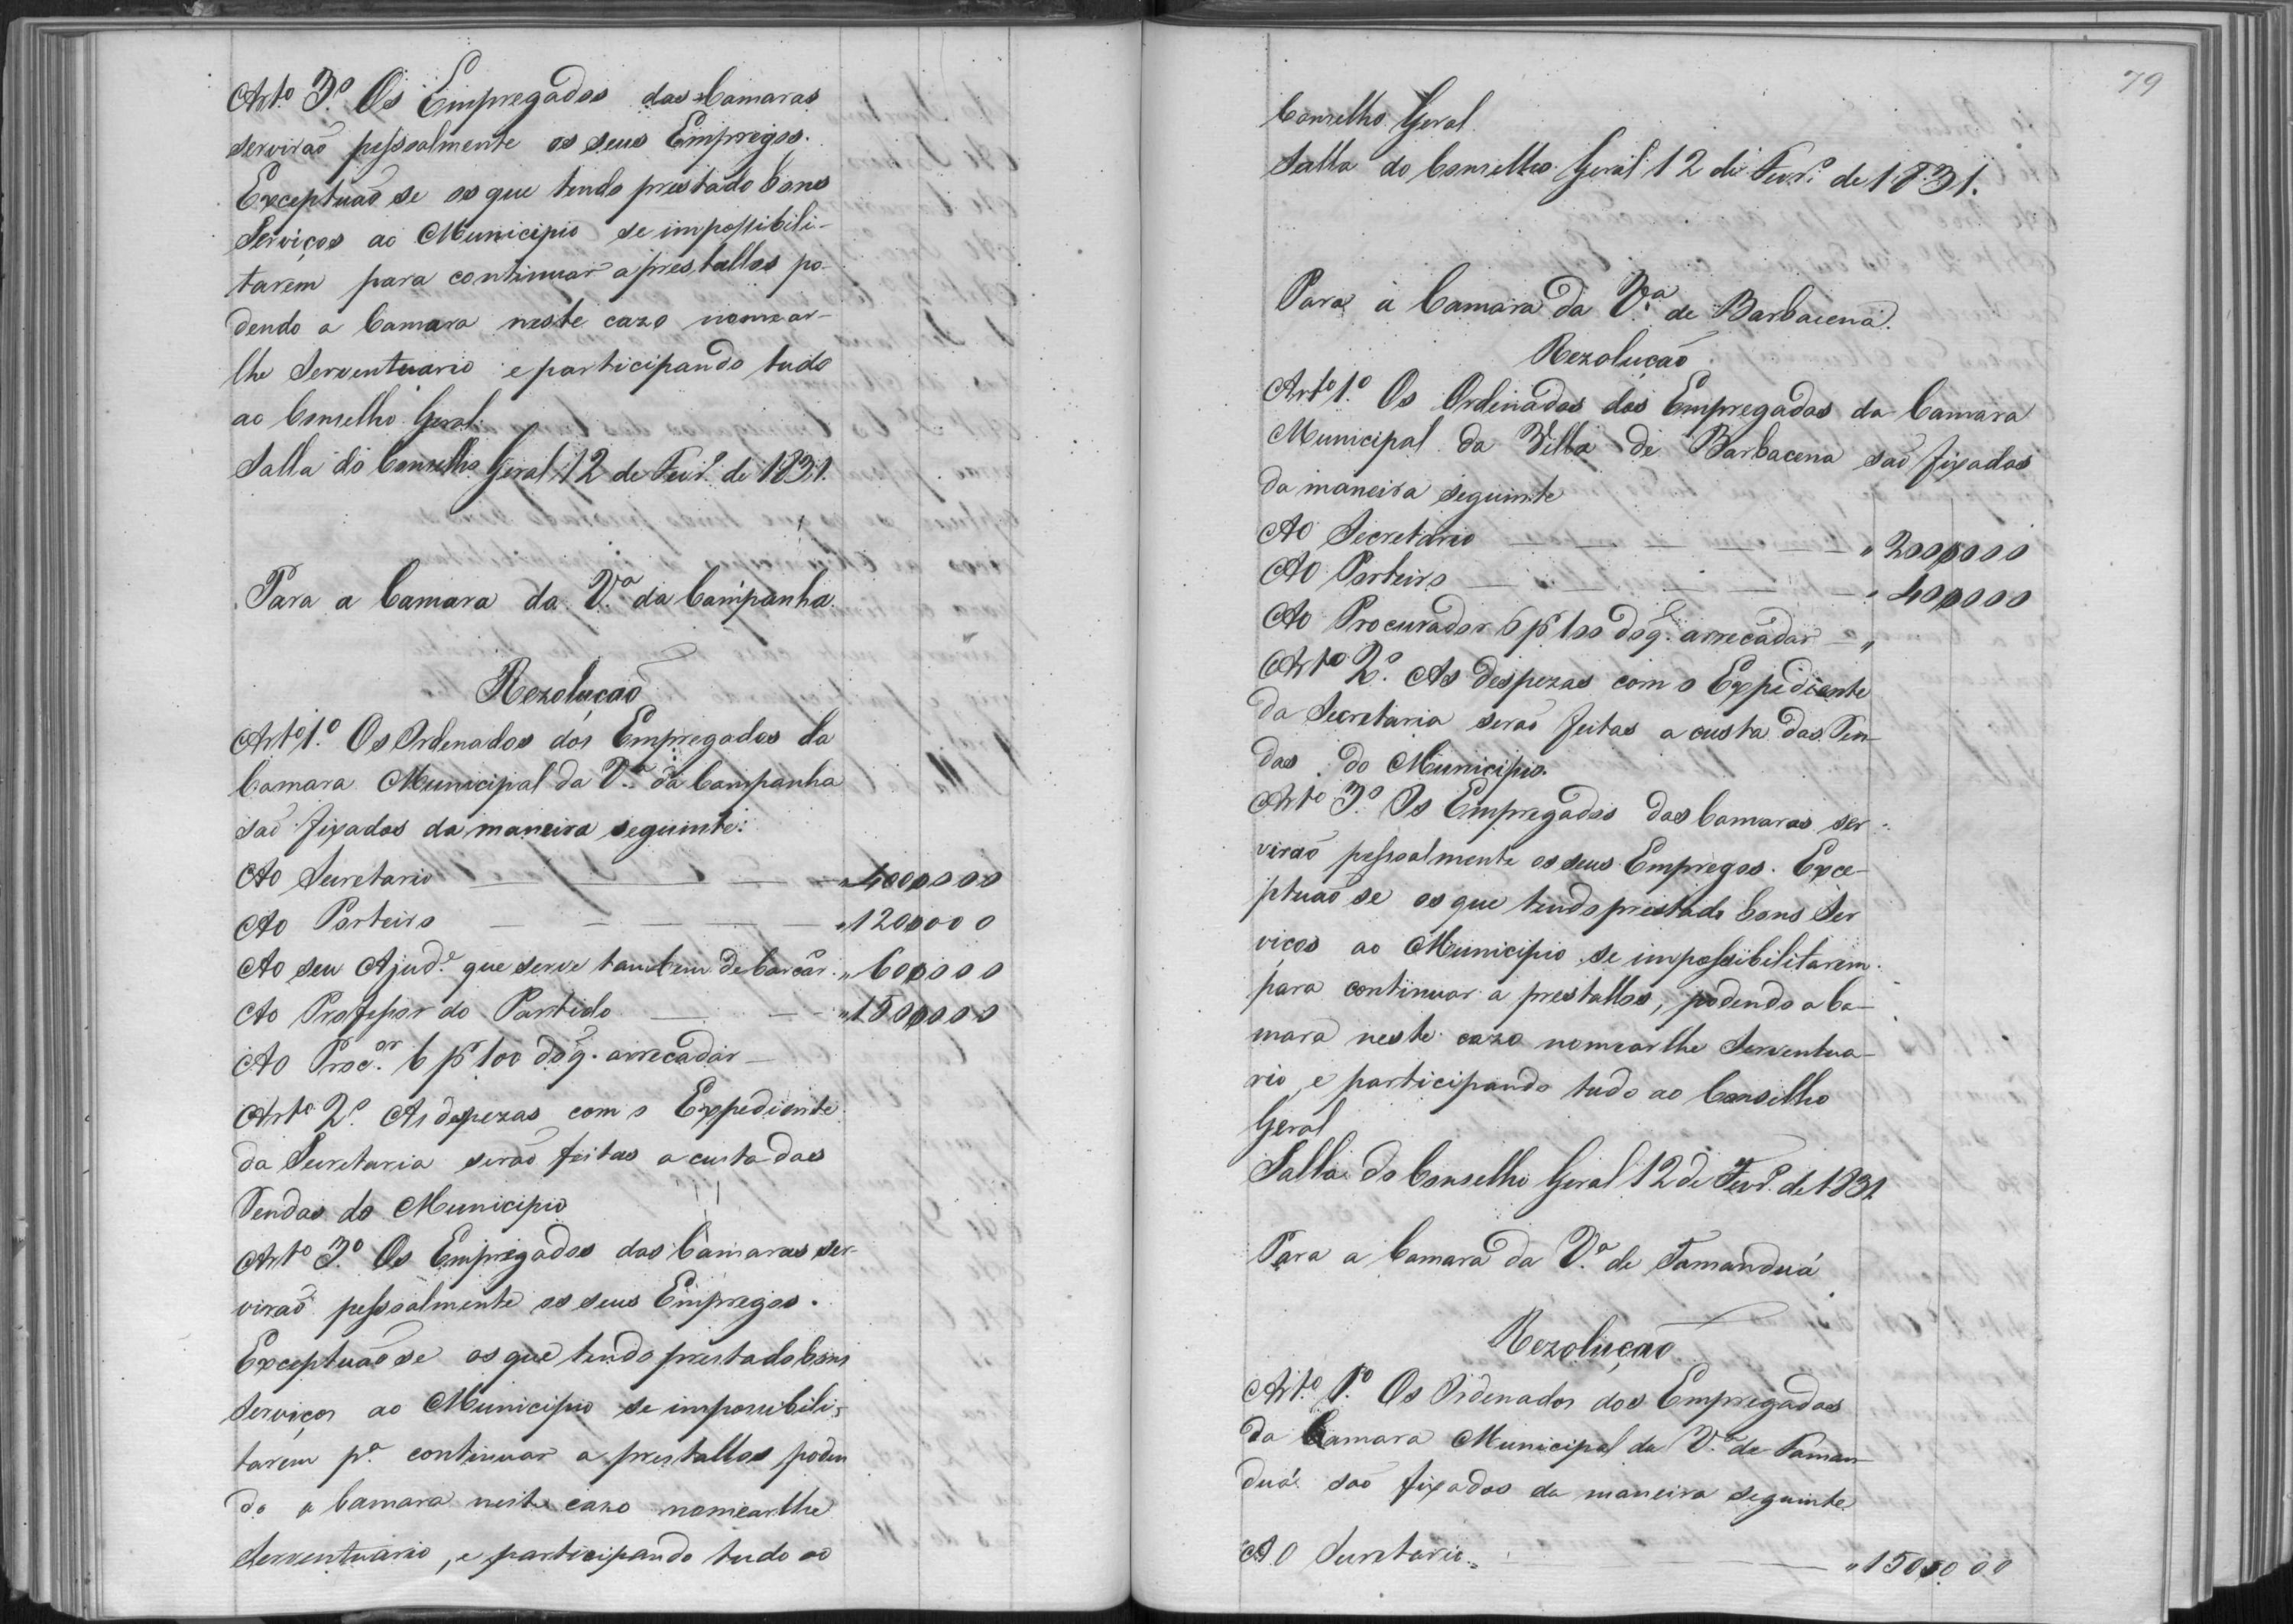 Art.o 3.o Os Empregados das Camaras
servirão pessoalmente os seus Empregos.
Exceptuão se os que tendo prestado bons
Serviços ao Municipio se impossibili-
tarem para continuar a prestallos po-
dendo a Camara neste cazo nomear-
lhe Serventuario e participando tudo
ao Conselho Geral.
Salla do Conselho Geral 12 de Fevr.o de 1831.
Para a Camara da V.a da Campanha.
Rezolução
Art.o 1.o Os Ordenados dos Empregados da
Camara Municipal da V.a da Campanha
são fixados da maneira seguinte:
Ao Secretario — — — "400$000
Ao Porteiro — — — — "120$000
Ao seu Ajud.e que serve tambem de Carcer. "60$000
Ao Professor do Partido — — "150$000
Ao Proc.or 6 p.r 100 do q. arrecadar —
Art.o 2.o As despezas com o Expediente
da Secretaria serão feitas a custa das
Rendas do Municipio
Art.o 3.o Os Empregados das Camaras ser-
virão pessoalmente os seus Empregos.
Exceptuão se os que tendo prestado bons
Serviços ao Municipio se impossibili-
tarem p.a continuar a prestallos poden
do a Camara neste cazo nomearlhe
Serventuario, e participando tudo ao
79
Conselho Geral
Salla do Conselho Geral 12 de Fevr.o de 1831.
Para a Camara da V.a de Barbacena.
Rezolução
Art.o 1.o Os Ordenados dos Empregados da Camara
Municipal da Villa de Barbacena são fixados
da maneira seguinte
Ao Secretario — — — — " 200$000
Ao Porteiro — — — — " 40$000
Ao Procurador 6 p.r 100 do q. arrecadar — "
Art.o 2.o As despezas com o Expediente
da Secretaria serão feitas a custa das Ren-
das do Municipio.
Art.o 3.o Os Empregados das Camaras ser-
virão pessoalmente os seus Empregos. Exce-
ptuão se os que tendo prestado bons Ser
viços ao Municipio se impossibilitarem
para continuar a prestallos, podendo a Ca-
mara neste cazo nomearlhe Serventua-
rio, e participando tudo ao Conselho
Geral
Salla do Conselho Geral 12 de Fevr.o de 1831
Para a Camara da V.a de Tamanduá
Rezolução
Art.o 1.o Os Ordenados dos Empregados
da Camara Municipal da V.a de Taman-
duá são fixados da maneira seguinte
Ao Secretario — — " 150$000